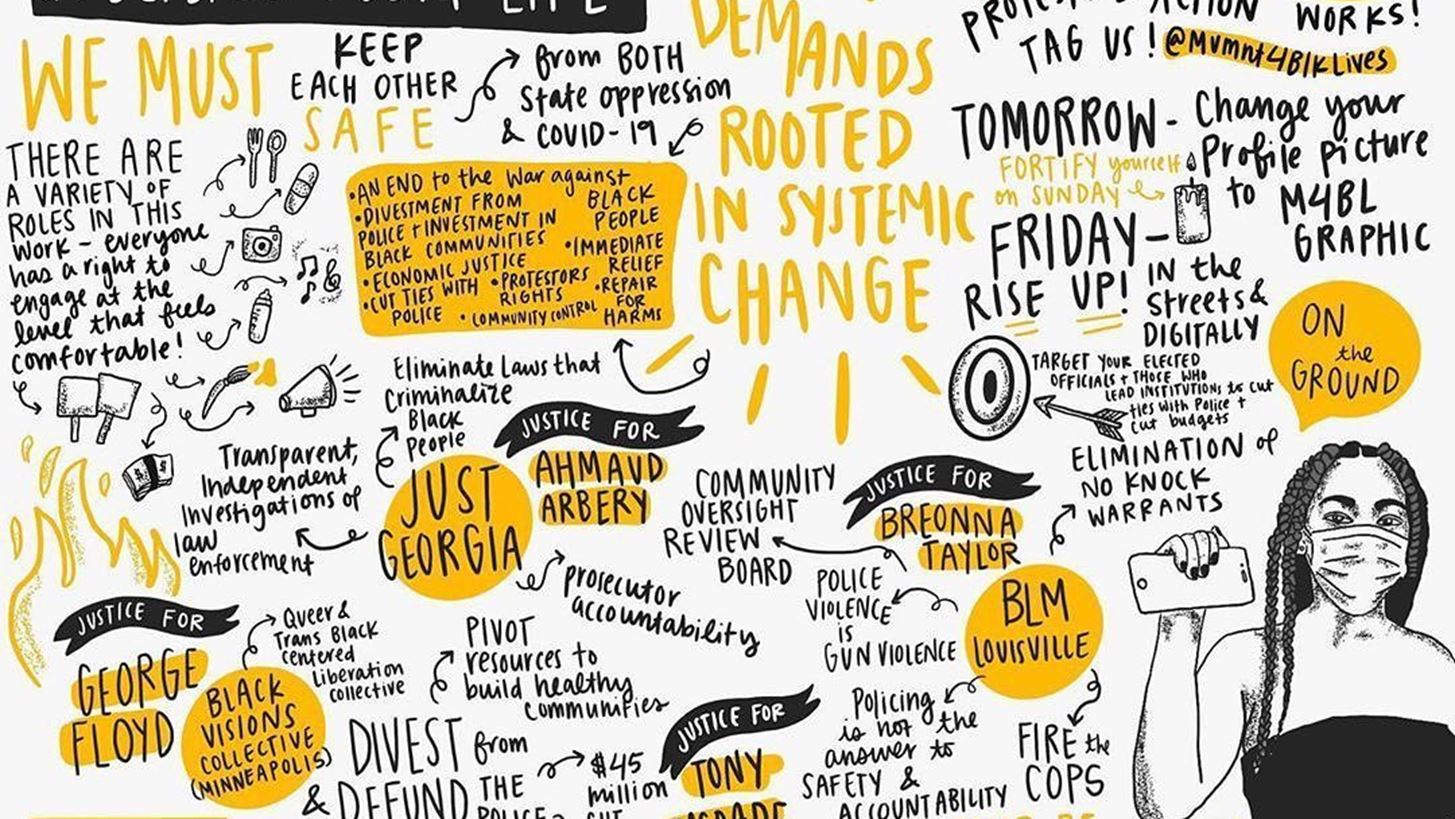 LIFE
WE MUST
KEEP
EACH OTHER
SAFE
from BOTH
State oppression
& COVID-19
THERE ARE
A VARIETY OF
ROLES IN THIS
WORK - everyone
has a right to
engage at the
level that feels
comfortable!
• AN END to the War against
BLACK
PEOPLE
• DIVESTMENT FROM
POLICE + INVESTMENT IN
BLACK COMMUNITIES
• ECONOMIC JUSTICE
• CUT TIES WITH
POLICE
• PROTESTORS
RIGHTS
• COMMUNITY CONTROL
• IMMEDIATE
RELIEF
• REPAIR
FOR
HARMS
DEMANDS
ROOTED
IN SYSTEMIC
CHANGE
ACTION
WORKS!
TAG US! @Mvmnt4BlkLives
TOMORROW - Change your
Profile picture
to M4BL
GRAPHIC
FORTIFY yourself
on SUNDAY
FRIDAY -
RISE UP!
IN the
Streets &
DIGITALLY
TARGET YOUR ELECTED
OFFICIALS + THOSE WHO
LEAD INSTITUTIONS to cut
ties with Police +
cut budgets
ON
the
GROUND
Eliminate Laws that
Criminalize
Black
People
Transparent,
Independent
Investigations of
law
enforcement
JUST
GEORGIA
JUSTICE FOR
AHMAUD
ARBERY
prosecutor
accountability
COMMUNITY
OVERSIGHT
REVIEW
BOARD
JUSTICE FOR
BREONNA
TAYLOR
ELIMINATION of
NO KNOCK
WARRANTS
POLICE
VIOLENCE
is
GUN VIOLENCE
BLM
LOUISVILLE
Policing
is not the
answer to
SAFETY &
ACCOUNTABILITY
FIRE the
COPS
JUSTICE FOR
GEORGE
FLOYD
BLACK
VISIONS
COLLECTIVE
(MINNEAPOLIS)
Queer &
Trans Black
Centered
Liberation
collective
PIVOT
resources to
build healthy
communities
DIVEST from
& DEFUND THE
POLICE
$45
million
CUT
JUSTICE FOR
TONY